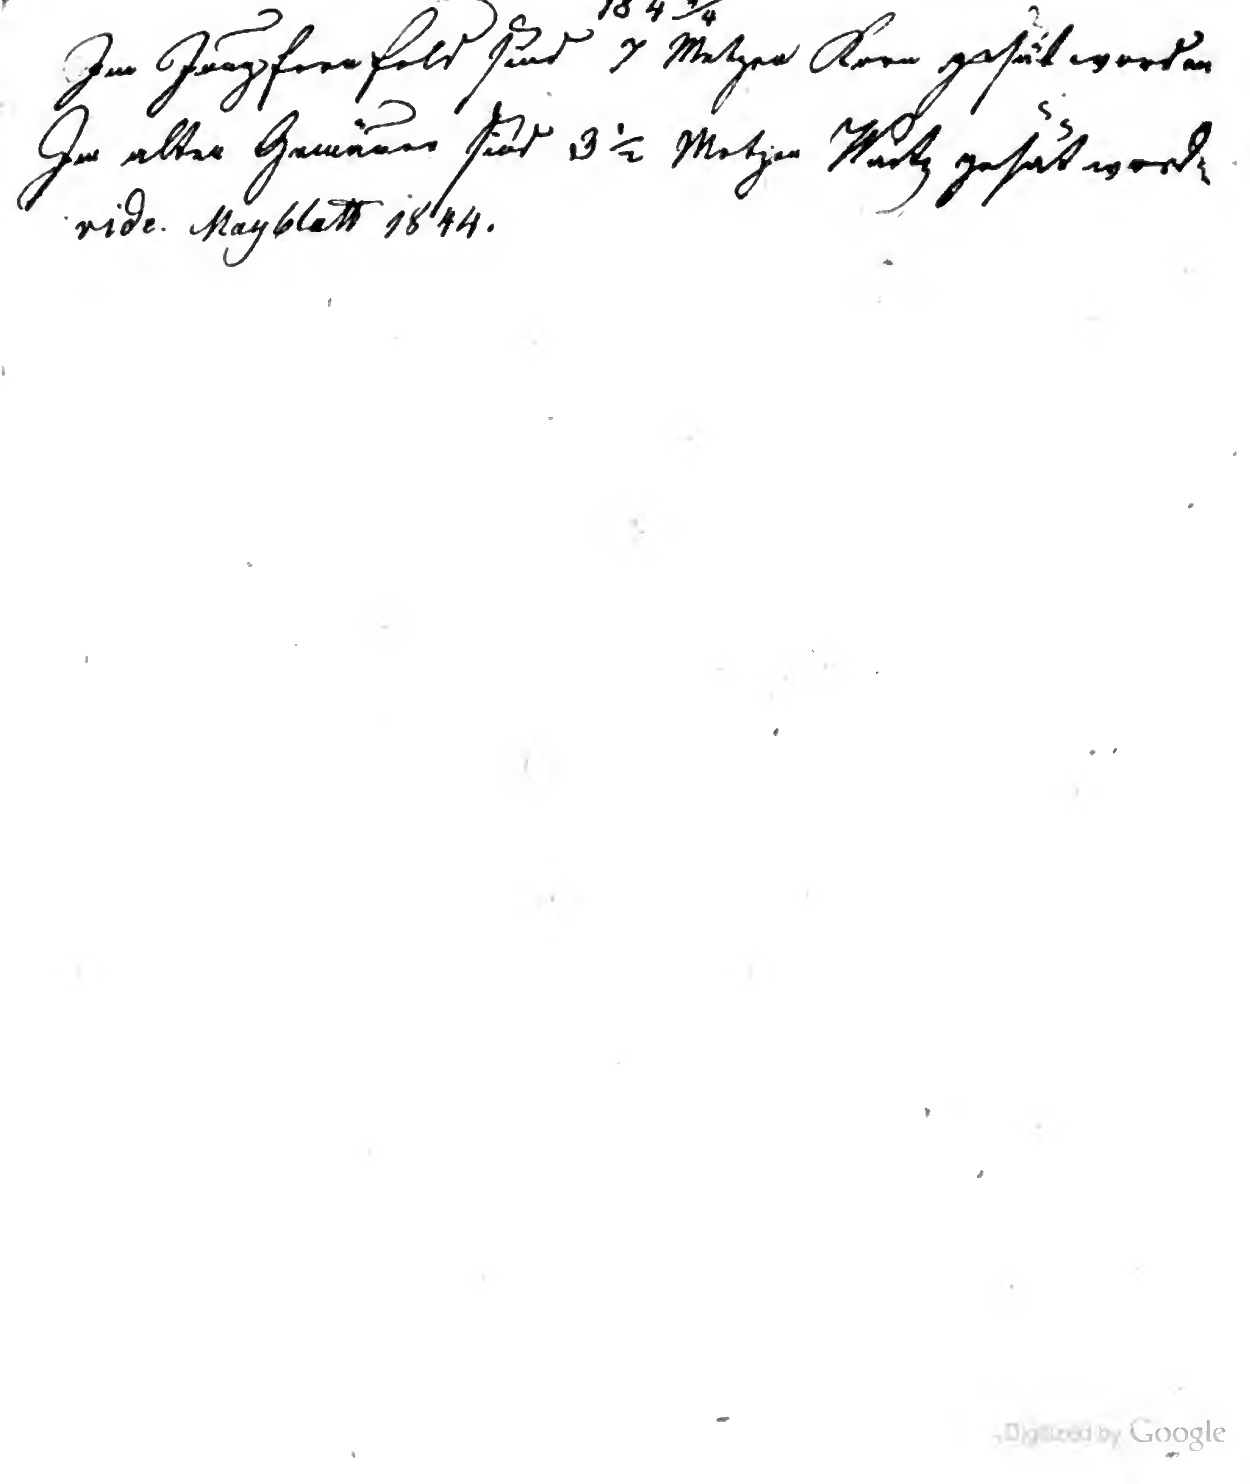 184 3/4
Im Jungfernfeld sind 7 Metzen Korn gesät worden
Im alten Gemäuer sind 3 ½ Metzen Waitz gesät word:
vide. Mayblatt 1844.
Digitized by Google